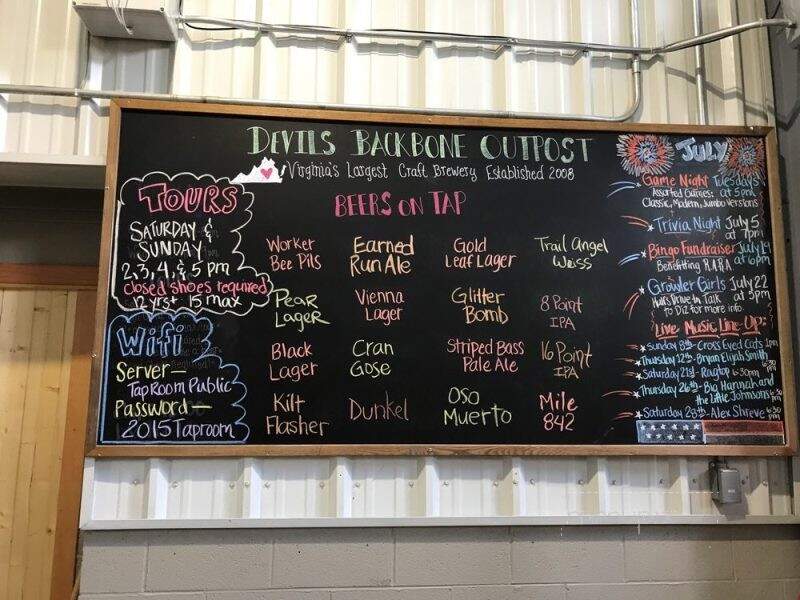 DEVILS BACKBONE OUTPOST
Virginia's Largest Craft Brewery Established 2008
TOURS
SATURDAY &
SUNDAY
2, 3, 4, & 5 pm
Closed shoes required
12 yrs+ 15 max
Wifi
Server—
TapRoom Public
Password—
2015 Taproom
BEERS ON TAP
Worker
Bee Pils
Earned
Run Ale
Gold
Leaf Lager
Trail Angel
Weiss
Pear
Lager
Vienna
Lager
Glitter
Bomb
8 Point
IPA
Black
Lager
Cran
Gose
Striped Bass
Pale Ale
16 Point
IPA
Kilt
Flasher
Dunkel
Oso
Muerto
Mile
842
JULY
Game Night Tuesdays
Assorted Games: at 5pm
Classic, Modern, Jumbo Versions
Trivia Night July 5
at 7pm
Bingo Fundraiser July 19
Benefitting at 6pm
Growler Girls July 22
Talk at 3pm
to Diz for more info.
Live Music Line-Up:
Sunday 8th- Cross Eyed Cats 1pm
Thursday 12th- Bryan Elijah Smith
Saturday 21st- Ragtop 6:30pm
Thursday 26th- Big Hannah and
the Little Johnsons
Saturday 28th- Alex Shreve